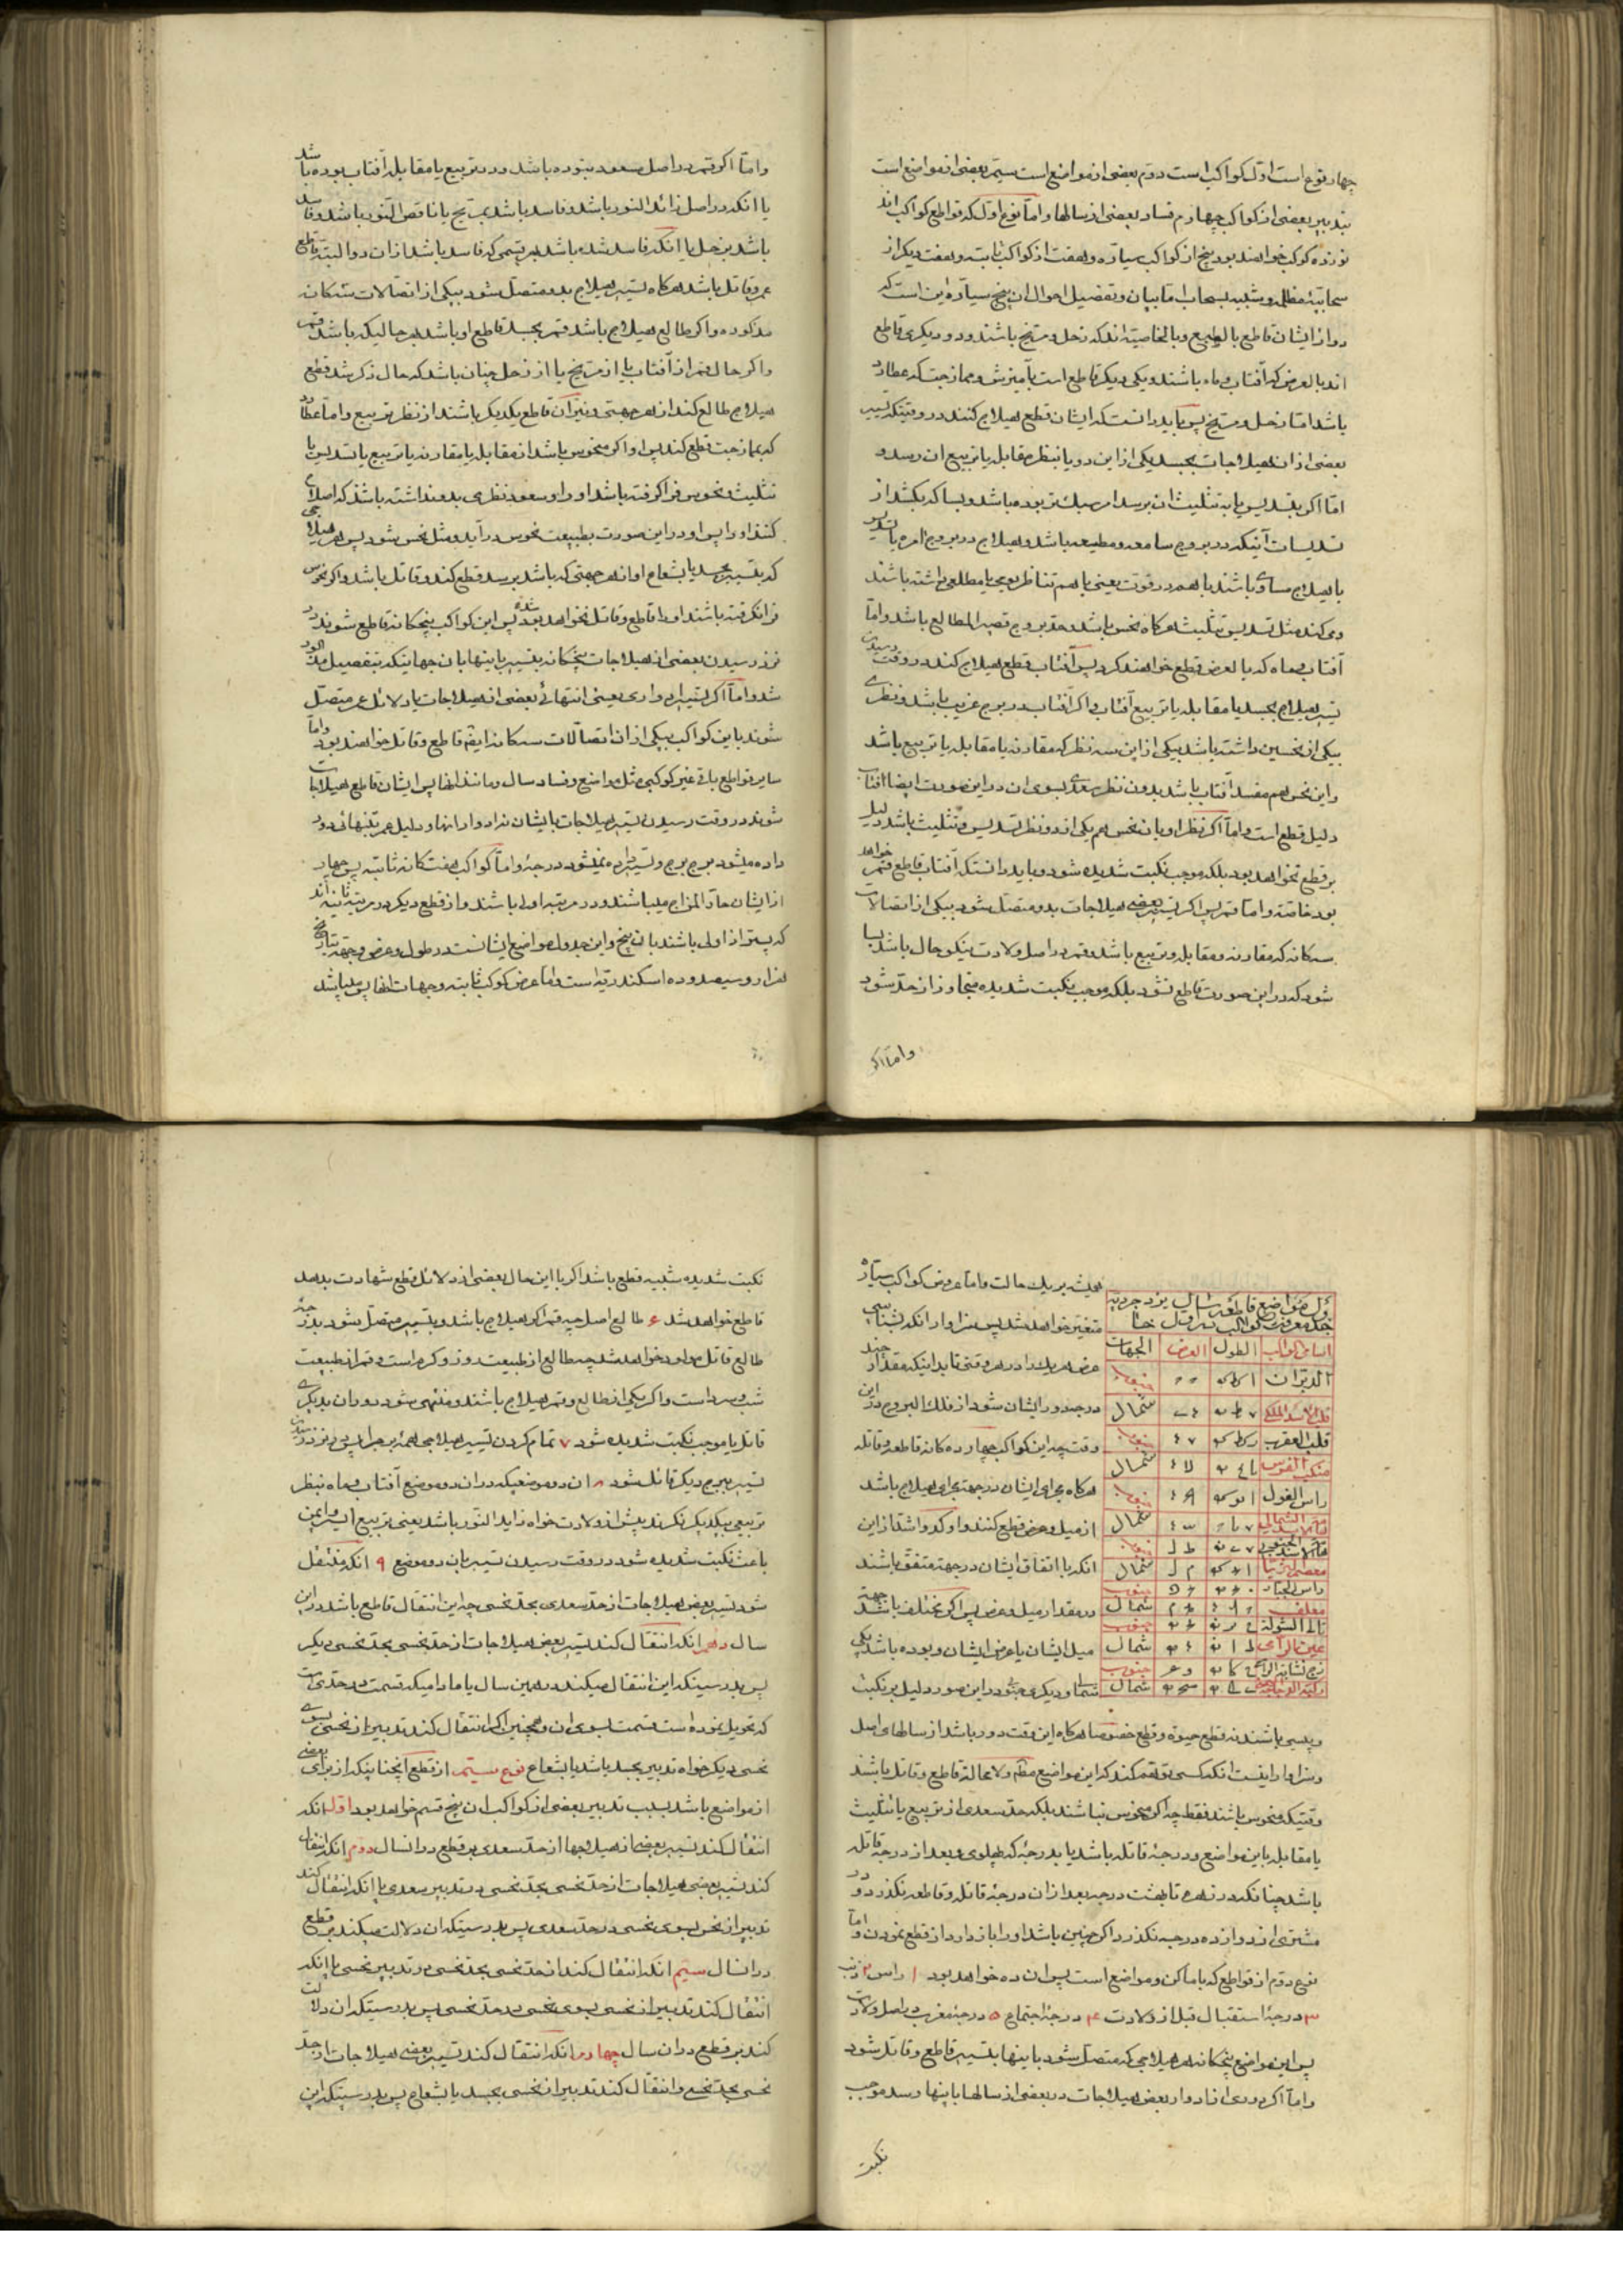 چهار نوع است اول کواکب است دوم بعضی از مواضع است سیم بعضی از مواضع است
بتدبیر بعضی از کواکب چهارم فساد بعضی از سالها و اما نوع اول که قواطع کواکب اند
نوزده کوکب خواهند بود پنج از کواکب سیاره و هفت از کواکب ثابته و هفت دیگر از
سحابیه مظلمه و شبیه بسحاب اما بیان و تفصیل احوال ان پنج سیاره این است که
دو از ایشان قاطع بالطبع و بالخاصیة اند که زحل و مریخ باشند و دو دیگری قاطع
اند بالعرض که آفتاب و ماه باشند و یکی دیگر قاطع است بآمیزش و ممازجت که عطارد
باشد اما زحل و مریخ پس باید دانست که ایشان قطع هیلاج کنند در وقتیکه تسییر
بعضی از ان هیلاجات بجسد یکی از این دو یا بنظر مقابله یا تربیع ان رسد و
اما اگر بتسدیس یا به تثلیث ان برسد امر سبک تر بوده باشد و بسا که بکشد از
تسدیسات آنیکه در بروج سامعه و مطیعه باشد و هیلاج در بروج امره یا تسدیس
با هیلاج مساوی باشند با هم در قوت یعنی با هم تناظر یومی یا مطلعی داشته باشند
و می کند مثل تسدیس تثلیث هرگاه نحس باشد و حد بروج قصیر المطالع باشد و اما
آفتاب و ماه که بالعرض قطع خواهند کرد پس آفتاب قطع هیلاج کند در وقت رسیدن
تسییر هیلاج بجسد یا مقابله یا تربیع آفتاب و اگر آفتاب در برج غریب باشد و نظری
بیکی از نحسین داشته باشد بیکی از این سه نظر که مقارنه یا مقابله یا تربیع باشد
و این نحس هم مفسد آفتاب باشد بدون نظر سعدی بسوی ان در این صورت ایضا افتاب
دلیل قطع است و اما اگر نظر او بان نحس هم یکی از دو نظر تسدیس و تثلیث باشد دلیل
بر قطع نخواهد بود بلکه موجب نکبت شدیده شود و باید دانست که آفتاب قاطع قمر خواهد
بود خاصة و اما قمر پس اگر تسییر بعضی هیلاجات بدو متصل شود بیکی از اتصالات
سه کانه که مقارنه و مقابله و تربیع باشد و قمر در اصل ولادت نیکو حال باشد بسا
شود که در این صورت قاطع نشود بلکه موجب نکبت شدیده متجاوز از حد شود
و اما اگر
و اما اگر قمر در اصل مسعود نبوده باشد و در تربیع یا مقابله آفتاب بوده باشد
یا انکه در اصل زائد النور باشد و فاسد باشد بمریخ یا ناقص النور باشد و فاسد
باشد بزحل یا انکه فاسد شده باشد بهر قسمی که فاسد باشد از ان دو البته قاطع
عمر و قاتل باشد هرگاه تسییر هیلاج بدو متصل شود بیکی از اتصالات سه کانه
مذکوره و اگر طالع هیلاج باشد قمر بجسد قاطع او باشد بهر حالیکه باشد قمر
و اگر حال قمر از آفتاب یا از مریخ یا از زحل چنان باشد که حال ذکر شد قطع
هیلاج طالع کند از هر جهتی و نیّران قاطع یکدیگر باشند از نظر تربیع و اما عطارد
که بممازجت قطع کند پس او اگر منحوس باشد از مقابله یا مقارنه یا تربیع یا تسدیس یا
تثلیث و نحوس فرا گرفته باشد او را و سعود نظری بدو نداشته باشد که اصلاح
کند او را پس او در این صورت بطبیعت نحوس در آید و مثل نحس شود پس هر هیلاجی
که بتسییر بجسد یا بشعاع او از هر جهتی که باشد برسد قطع کند و قاتل باشد و اگر نحوس
فرا نگرفته باشند او را قاطع و قاتل نخواهد بود پس این کواکب پنجکانه قاطع شده شوند در
نزد رسیدن بعضی از هیلاجات پنجکانه بتسییر باینها بان جهاتیکه بتفصیل مذکور
شد و اما اگر تسییر ادواری یعنی انتهائی بعضی از هیلاجات یا دلائل عمر متصل
شوند باین کواکب بیکی از ان اتصالات سه کانه ایضا قاطع و قاتل خواهند بود و اما
سایر قواطع باقی غیر کوکبی مثل مواضع و فساد سال و مانند انها پس ایشان قاطع هیلاجات
شوند در وقت رسیدن تسییر هیلاجات بایشان نه ادوار انها و دلیل عمر بتنهائی دور
داده میشود برج برج و تسییر داده نمیشود درجة و اما کواکب هفتکانه ثابته پس چهار
از ایشان حادّ المزاج میباشند و در مرتبه اولی باشند و از قطع دیگر در مرتبه ثانیه اند
که پستر از اولی باشند بان پنج و این جدول مواضع ایشانست در طول و عرض و جهة بتاریخ
هزار و سیصد و ده اسکندریه است و اما عرض کوکب ثابته و جهات انها پس میباشد
همیشه بر یک حالت و اما عروض کواکب سیاره
متغیر خواهد شد پس سزاوار انکه بشناسی
عرض هر یک را در هر وقتی تا بدانیکه مقدار چند
درجه دور ایشان شود از فلک البروج در این
وقت چه این کواکب چهارده کانه قاطعه و قاتله
هرگاه مجرای ایشان در جهة مجرای هیلاج باشد
از میل و عرض قطع کنند و او کرد و اشتد از این
انکه با اتفاق ایشان در جهة متفق باشند
در مقدار میل و عرض پس اگر مختلف باشد جهة
میل ایشان یا عرض ایشان و بوده باشد یکی
شمالی و دیگری جنوبی در این صورت دلیل بر نکبت
اسامی الکواکب الطول العرض الجهات
الدبران جنوب
قلب الاسد الملکی شمال
قلب العقرب جنوب
منکب الفرس شمال
راس الغول
شمال
معصم الثریا شمال
راس الجبار جنوب
معلف شمال
تالی الشولة جنوب
عین الرامی شمال
زج نشابة الرامی جنوب
شمال
و بسی باشند نه قطع حیوة و قطع خصوصا هرگاه این وقت دور باشد از سالهای اصل
و سزاوار اینست انکه کسی توهم کند که این مواضع مظلم و لا محالة قاطع و قاتل باشند
وقتیکه منحوس باشند فقط چه اگر منحوس نباشند بلکه حد سعدی از تربیع یا تثلیث
یا مقابله باین مواضع و درجۀ قاتله باشد یا بدرجۀ که پهلوی و بعد از درجۀ قاتله
باشد چنانکه در زهره تا هشت درجه بعد از ان درجۀ قاتله و قاطعه نگذرد و در
مشتری از دوازده درجه نگذرد اگر چنین باشد او را باز دارد از قطع نمودن و اما
نوع دوم از قواطع که باماکن و مواضع است پس ان ده خواهد بود ۱ راس ۲ ذنب
۳ درجۀ استقبال قبل از ولادت ۴ درجۀ اجتماع ۵ درجۀ مغرب در اصل ولادت
پس این مواضع پنجکانه هر هیلاجی که متصل شود باینها بتسییر قاطع و قاتل شود
و اما اگر دوری از ادوار بعض هیلاجات در بعضی از سالها باینها رسد موجب
نکبت
نکبت شدیده شبیه قطع باشد اگر با این حال بعضی از دلائل قطع شهادت بدهد
قاطع خواهد شد ۶ طالع اصل چه قمر اگر هیلاج باشد و بتسییر متصل شود بدرجۀ
طالع قاتل مولود خواهد شد چه طالع از طبیعت روز و گرم است و قمر از طبیعت
شب و سرد است و اگر یکی از طالع و قمر هیلاج باشند و منتهی شود دوران بدیگری
قاتل یا موجب نکبت شدیده شود ۷ تمام کردن تسییر هیلاجی همۀ برجرا پس در نزد رسیدن
تسییر ببرج دیگر قاتل شود ۸ ان دو موضعیکه در ان دو موضع آفتاب و ماه بنظر
تربیعی بیکدیگر نگرند پیش از ولادت خواه زاید النور باشد یعنی تربیع ایسر و ایمن
باعث نکبت شدیده شود در وقت رسیدن تسییر بان دو موضع ۹ انکه منتقل
شود تسییر بعض هیلاجات از حد سعدی بحد نحسی چه این انتقال قاطع باشد در این
سال دهم انکه انتقال کند تسییر بعض هیلاجات از حد نحسی بحد نحسی دیگر
پس بدرستیکه این انتقال میکند در همین سال یا مادامیکه قسمت در حدیست
که تحویل نموده است قسمت بسوی ان و همچنین اگر انتقال کند تدبیر از نحسی بسوی
نحسی دیگر خواه تدبیر بجسد باشد یا بشعاع نوع سیتم از قطع انچنانیکه از برای بعضی
از مواضع باشد بسبب تدبیر بعضی از کواکب ان پنج قسم خواهد بود اول انکه
انتقال کند تسییر بعضی از هیلاجها از حد سعدی بر قطع در ان سال دوم انکه انتقال
کند تسییر بعضی هیلاجات از حد نحسی بحد نحسی و تدبیر سعدی یا انکه انتقال کند
تدبیر از نحس بسوی نحسی در حد سعدی پس بدرستیکه ان دلالت میکند بر قطع
در ان سال سیم انکه انتقال کند از حد نحسی بحد نحسی و تدبیر نحسی یا انکه
انتقال کند تدبیر از نحسی بسوی نحسی در حد نحسی پس بدرستیکه ان دلالت
کند بر قطع در ان سال چهارم انکه انتقال کند تسییر بعضی هیلاجات از حد
نحسی بحد نحسی و انتقال کند تدبیر از نحسی بجسد یا بشعاع پس بدرستیکه این